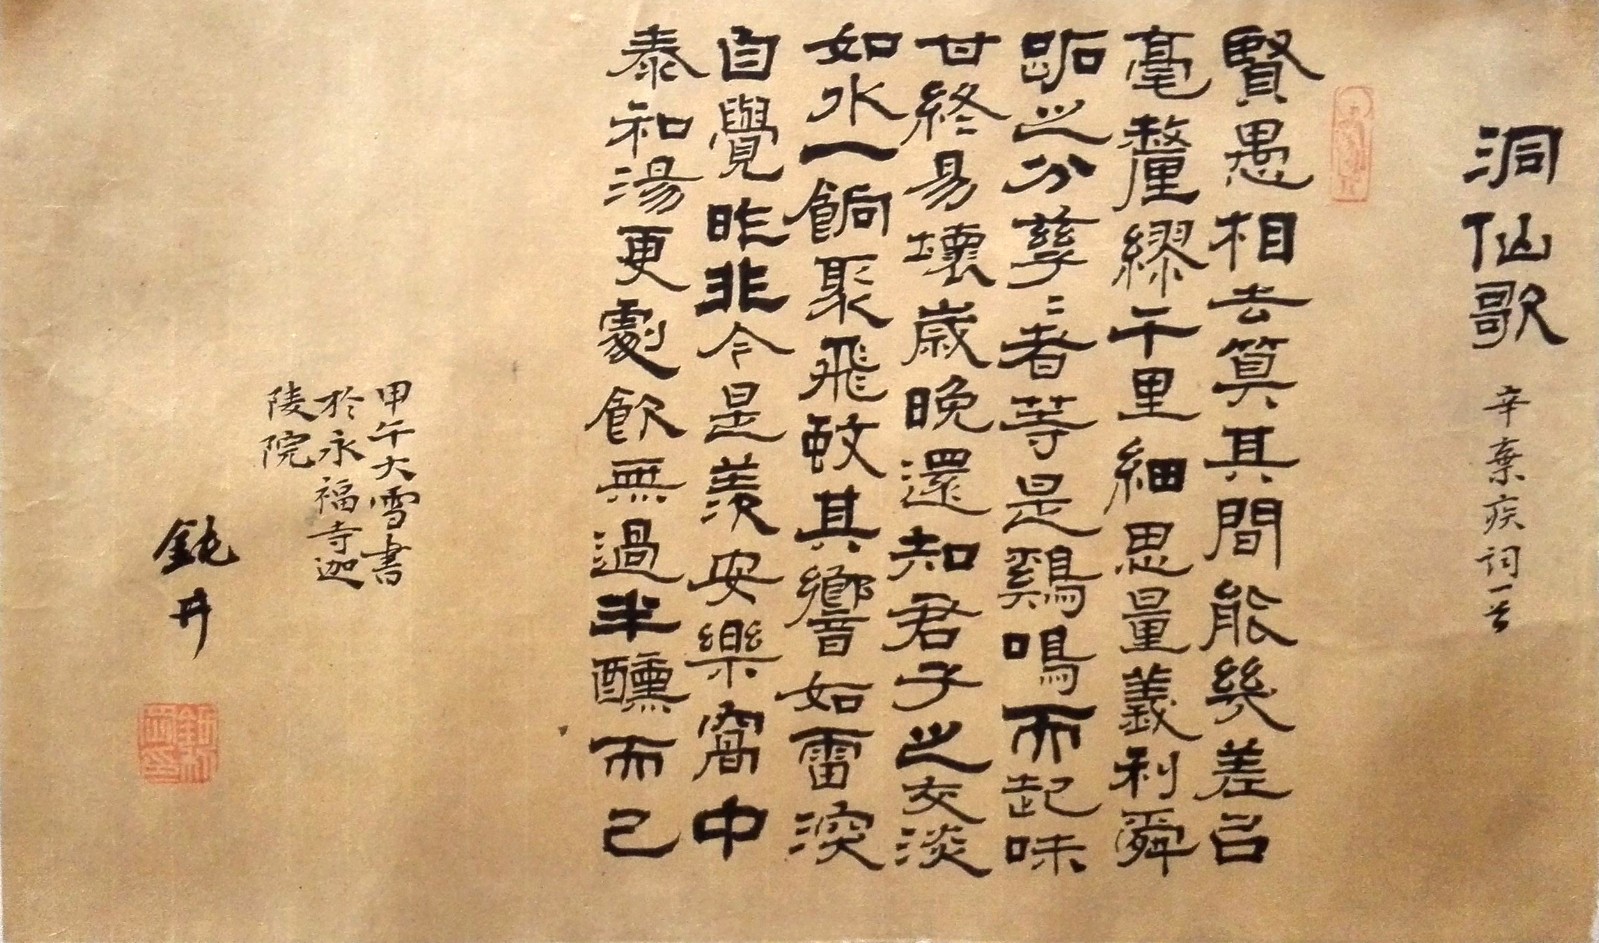 洞仙歌
辛棄疾詞一首
賢愚相去算其間能幾差㠯
毫釐繆千里細思量義利舜
跖之分孳〻者等是鷄鳴而起味
甘終易壞歲晚還知君子之交淡
如水一餉聚飛蚊其響如雷深
自覺昨非今是羨安樂窩中
泰和湯更劇飲無過半醺而已
甲午大雪書
於永福寺迦
陵院
鈍井